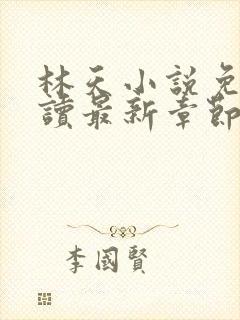 林天小說免
讀最新章節
李國賢